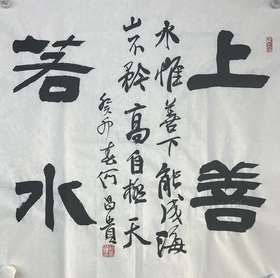 上善
若水
水惟善下能成海
山不矜高自极天
癸卯春何昌贵